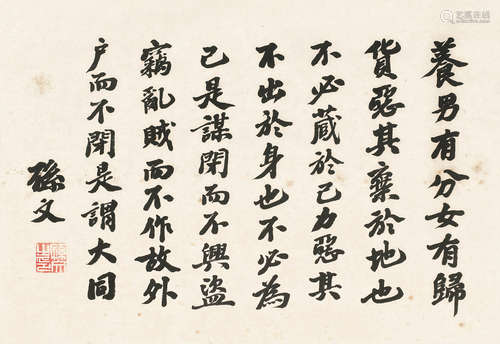 養男有分女有歸
貨惡其棄於地也
不必藏於己力惡其
不出於身也不必為
己是謀閉而不興盜
竊亂賊而不作故外
户而不閉是謂大同
孫文